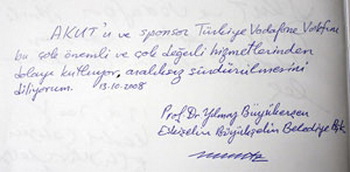 AKUT'u ve sponsor Türkiye Vodafone Vakfını
bu çok önemli ve çok değerli hizmetlerinden
dolayı kutluyor, aralıksız sürdürülmesini
diliyorum. 13.10.2008
Prof. Dr. Yılmaz Büyükerşen
Eskişehir Büyükşehir Belediye Bşk.